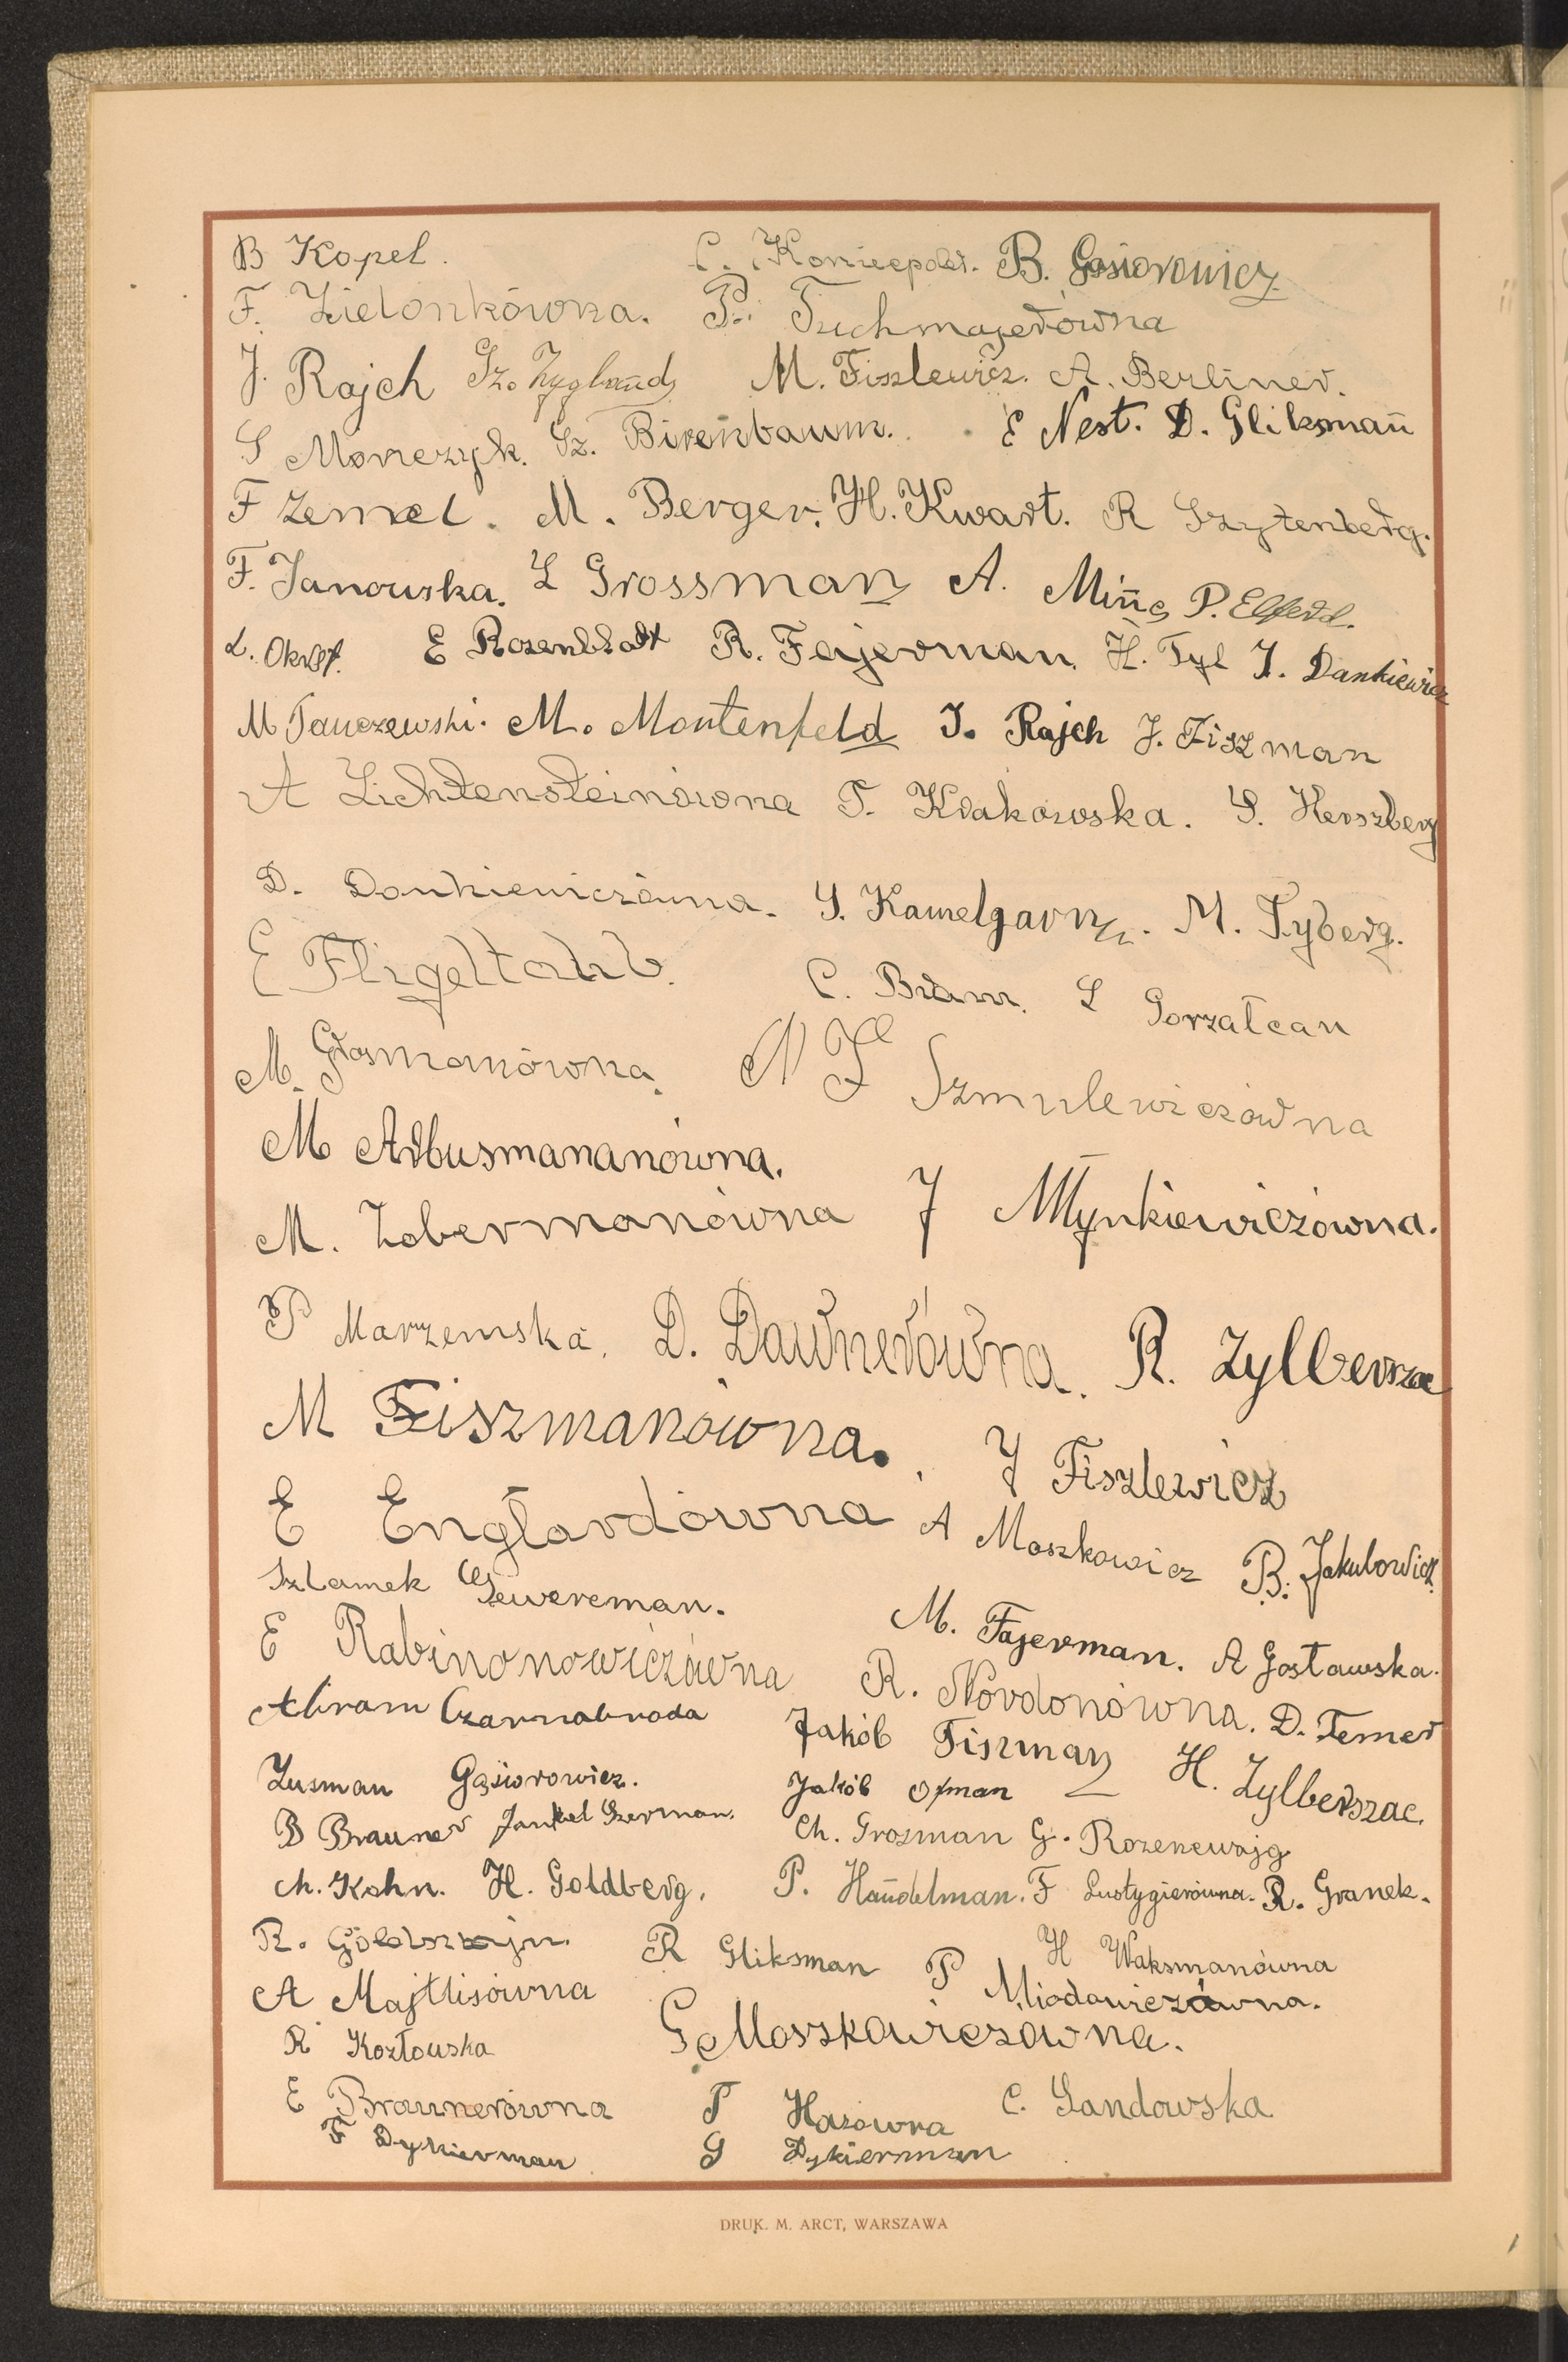 B Kopel. C. Koniecpolsk. B. Gąsiorowicz
F. Zielonkówna. P. Tuchmajerówna
J. Rajch Sz. Zyglband M. Fiszlewicz. A. Berliner.
S Monezyk. Sz. Birenbaum. E Nest. D. Gliksman
F Zemel. M. Berger. H. Kwart. R Szytenberg.
F. Janowska. L Grossman A. Minc P. Elferd.
L. Okręt. E Rozenblat R. Fajerman. H. Tyl J. Dankiewicz
M Tauczewski. M. Montenfeld J. Rajch J. Fiszman
A Lichtensteinówna T. Krakowska. S. Herszberg
D. Dankiewiczówna. S. Kamelgarn. M. Tyberg.
E Fligeltaub. C. Bram. L Gorzałcan
M. Glosmanówna. N F Szmulewiczówna
M Arbusmananówna.
M. Zobermanówna J Młynkiewiczówna.
P Marzemska. D. Dawnerówna. R. Zylberszac
M Fiszmanówna. J Fiszlewicz
E Englardówna A Moszkowicz B. Jakubowicz
Szlamek Gewereman. M. Fajerman. A Gostawska.
E Rabinonowiczówna R. Nordonówna. D. Temer
Abram Czarnabroda Jakób Fiszman H. Zylberszac.
Zusman Gąsiorowicz. Jakób Ofman
B Brauner Jankel Szerman. Ch. Grosman G. Rozencwajg
Ch. Kohn. H. Goldberg. P. Handelman. F Lustygierówna. R. Granek.
R. Goldsztajn. R Gliksman H Waksmanówna
A Majtlisówna P Miodowiczówna.
R Kozłowska G Moszkowiczówna.
E Braunerówna T Hazówna C. Landowska
F Dykierman G Dykierman
DRUK. M. ARCT, WARSZAWA